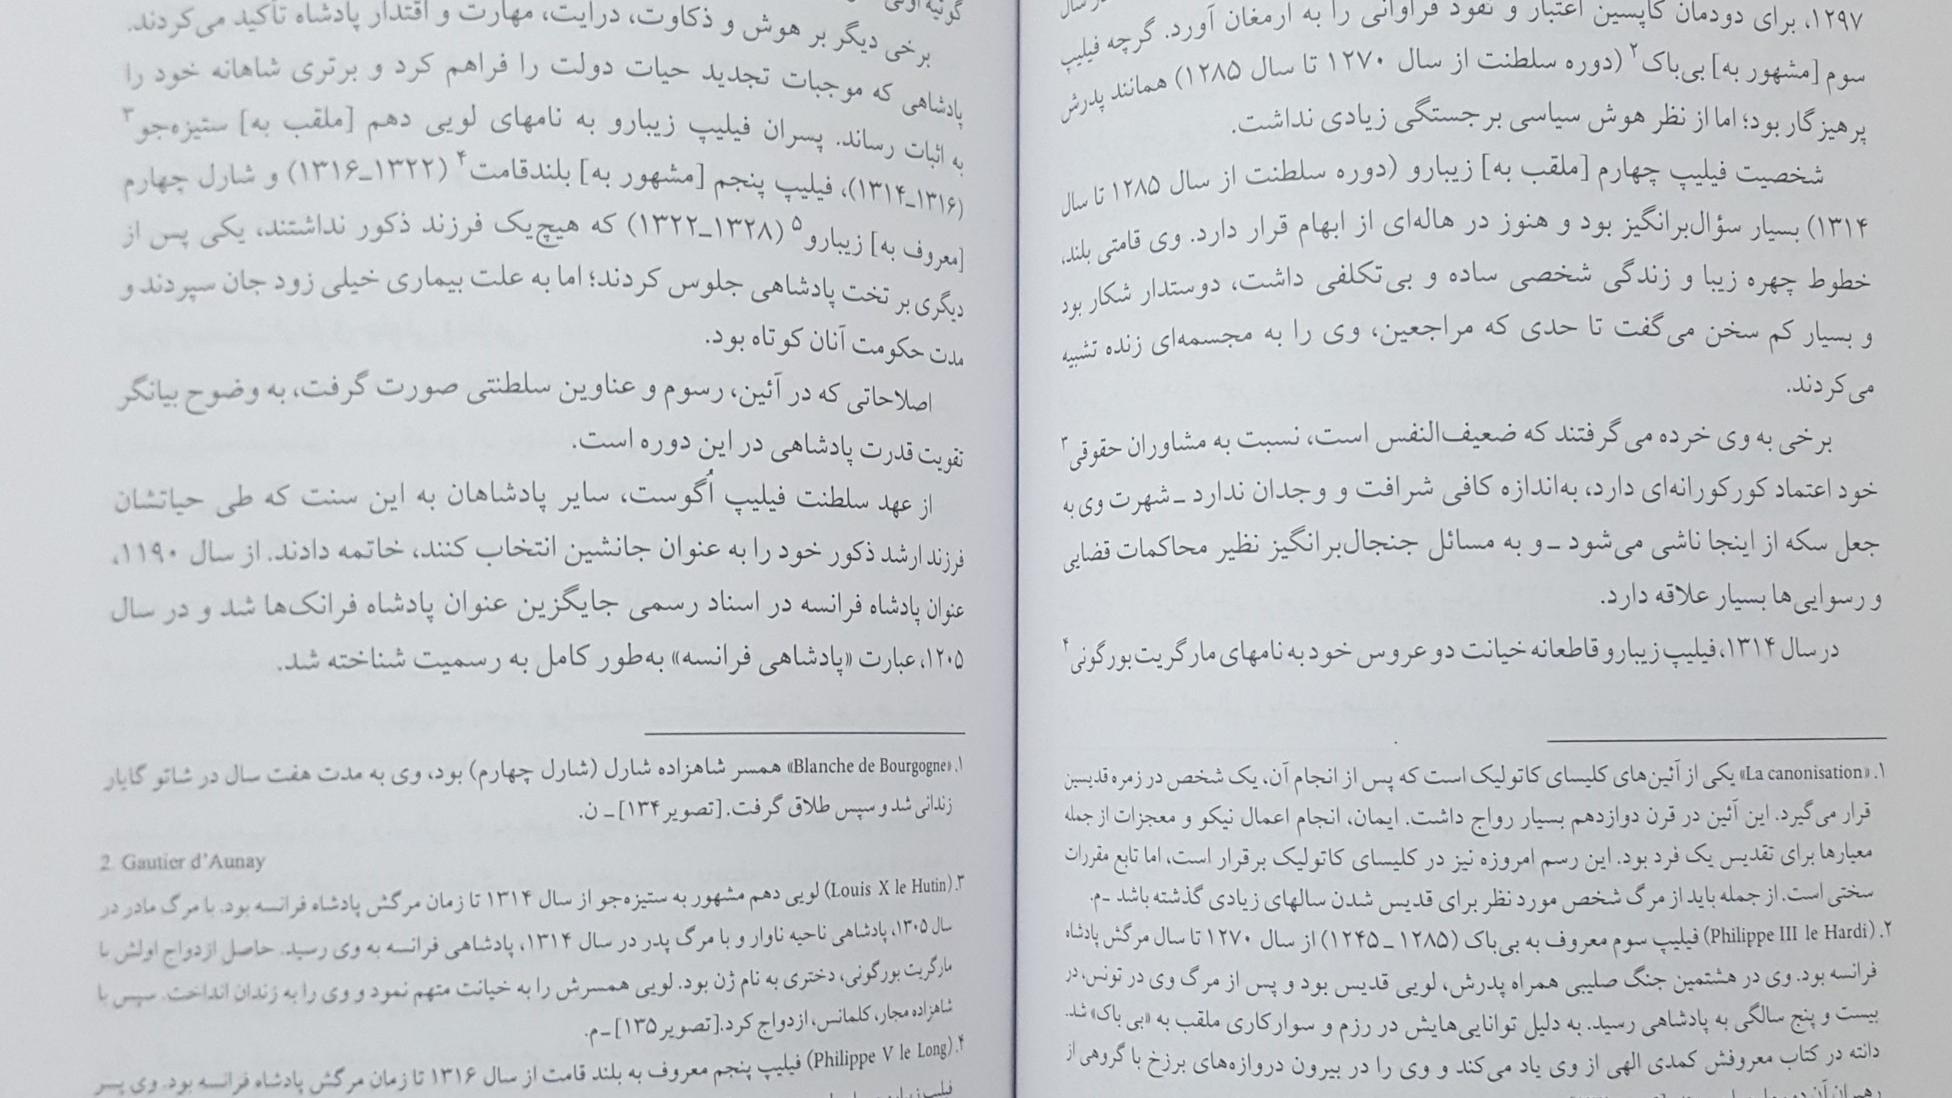 ۱۲۹۷، برای دودمان کاپسین اعتبار و نفوذ فراوانی را به ارمغان آورد. گرچه فیلیپ
سوم [مشهور به] بی‌باک۲ (دوره سلطنت از سال ۱۲۷۰ تا سال ۱۲۸۵) همانند پدرش
پرهیزگار بود؛ اما از نظر هوش سیاسی برجستگی زیادی نداشت.
شخصیت فیلیپ چهارم [ملقب به] زیبارو (دوره سلطنت از سال ۱۲۸۵ تا سال
۱۳۱۴) بسیار سؤال‌برانگیز بود و هنوز در هاله‌ای از ابهام قرار دارد. وی قامتی بلند،
خطوط چهره زیبا و زندگی شخصی ساده و بی‌تکلفی داشت، دوستدار شکار بود
و بسیار کم سخن می‌گفت تا حدی که مراجعین، وی را به مجسمه‌ای زنده تشبیه
می‌کردند.
برخی به وی خرده می‌گرفتند که ضعیف‌النفس است، نسبت به مشاوران حقوقی۳
خود اعتماد کورکورانه‌ای دارد، به‌اندازه کافی شرافت و وجدان ندارد ـ شهرت وی به
جعل سکه از اینجا ناشی می‌شود ـ و به مسائل جنجال‌برانگیز نظیر محاکمات قضایی
و رسوایی‌ها بسیار علاقه دارد.
در سال ۱۳۱۴، فیلیپ زیبارو قاطعانه خیانت دو عروس خود به نامهای مارگریت بورگونی۴
۱. «La canonisation» یکی از آئین‌های کلیسای کاتولیک است که پس از انجام آن، یک شخص در زمره قدیسین
قرار می‌گیرد. این آئین در قرن دوازدهم بسیار رواج داشت. ایمان، انجام اعمال نیکو و معجزات از جمله
معیارها برای تقدیس یک فرد بود. این رسم امروزه نیز در کلیسای کاتولیک برقرار است، اما تابع مقررات
سختی است. از جمله باید از مرگ شخص مورد نظر برای قدیس شدن سالهای زیادی گذشته باشد ـ م.
۲. (Philippe III le Hardi) فیلیپ سوم معروف به بی‌باک (۱۲۸۵ ـ ۱۲۴۵) از سال ۱۲۷۰ تا سال مرگش پادشاه
فرانسه بود. وی در هشتمین جنگ صلیبی همراه پدرش، لویی قدیس بود و پس از مرگ وی در تونس، در
بیست و پنج سالگی به پادشاهی رسید. به دلیل توانایی‌هایش در رزم و سوارکاری ملقب به «بی باک» شد.
دانته در کتاب معروفش کمدی الهی از وی یاد می‌کند و وی را در بیرون دروازه‌های برزخ با گروهی از
برخی دیگر بر هوش و ذکاوت، درایت، مهارت و اقتدار پادشاه تأکید می‌کردند.
پادشاهی که موجبات تجدید حیات دولت را فراهم کرد و برتری شاهانه خود را
به اثبات رساند. پسران فیلیپ زیبارو به نامهای لویی دهم [ملقب به] ستیزه‌جو۳
(۱۳۱۶ـ۱۳۱۴)، فیلیپ پنجم [مشهور به] بلندقامت۴ (۱۳۲۲ـ۱۳۱۶) و شارل چهارم
[معروف به] زیبارو۵ (۱۳۲۸ـ۱۳۲۲) که هیچ‌یک فرزند ذکور نداشتند، یکی پس از
دیگری بر تخت پادشاهی جلوس کردند؛ اما به علت بیماری خیلی زود جان سپردند و
مدت حکومت آنان کوتاه بود.
اصلاحاتی که در آئین، رسوم و عناوین سلطنتی صورت گرفت، به وضوح بیانگر
تقویت قدرت پادشاهی در این دوره است.
از عهد سلطنت فیلیپ اُگوست، سایر پادشاهان به این سنت که طی حیاتشان
فرزند ارشد ذکور خود را به عنوان جانشین انتخاب کنند، خاتمه دادند. از سال ۱۱۹۰،
عنوان پادشاه فرانسه در اسناد رسمی جایگزین عنوان پادشاه فرانک‌ها شد و در سال
۱۲۰۵، عبارت «پادشاهی فرانسه» به‌طور کامل به رسمیت شناخته شد.
۱. «Blanche de Bourgogne» همسر شاهزاده شارل (شارل چهارم) بود، وی به مدت هفت سال در شاتو گایار
زندانی شد و سپس طلاق گرفت. [تصویر ۱۳۴] ـ ن.
2. Gautier d'Aunay
۳. (Louis X le Hutin) لویی دهم مشهور به ستیزه‌جو از سال ۱۳۱۴ تا زمان مرگش پادشاه فرانسه بود. با مرگ مادر در
سال ۱۳۰۵، پادشاهی ناحیه ناوار و با مرگ پدر در سال ۱۳۱۴، پادشاهی فرانسه به وی رسید. حاصل ازدواج اولش با
مارگریت بورگونی، دختری به نام ژن بود. لویی همسرش را به خیانت متهم نمود و وی را به زندان انداخت. سپس با
شاهزاده مجار، کلمانس، ازدواج کرد. [تصویر ۱۳۵] ـ م.
۴. (Philippe V le Long) فیلیپ پنجم معروف به بلند قامت از سال ۱۳۱۶ تا زمان مرگش پادشاه فرانسه بود. وی پسر